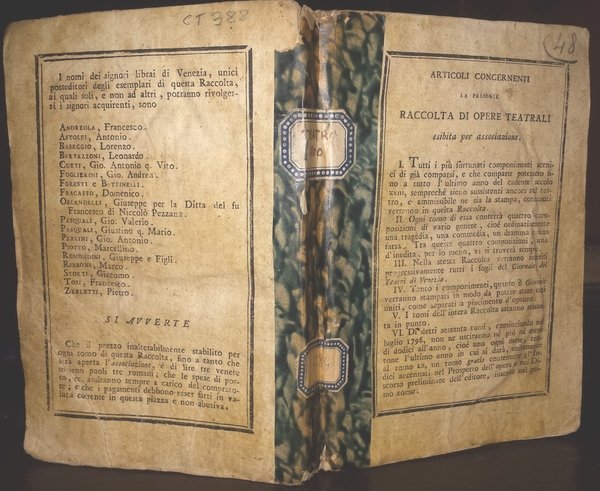 CT 388
I nomi dei signori librai di Venezia, unici
posseditori degli esemplari di questa Raccolta,
ai quali soli, e non ad altri, potranno rivolger-
si i signori acquirenti, sono
ANDREOLA, Francesco.
ASTOLFI, Antonio.
BASEGGIO, Lorenzo.
BERTAZZONI, Leonardo.
CURTI, Gio. Antonio q. Vito.
FOGLIERINI, Gio. Andrea.
FORESTI e BETTINELLI.
FRACASSO, Domenico.
ORLANDELLI, Giuseppe per la Ditta del fu
Francesco di Niccolò Pezzana.
PASQUALI, Gio. Valerio.
PASQUALI, Giustino q. Mario.
PERLINI, Gio. Antonio.
PIOTTO, Marcellino.
REMONDINI, Giuseppe e Figli.
Marco.
STORTI, Giacomo.
TOSI, Francesco.
ZERLETTI, Pietro.
SI AVVERTE
Che il prezzo inalterabilmente stabilito per
ogni tomo di questa Raccolta, fino a tanto che
sarà aperta l'associazione, è di lire tre venete
ossieno paoli tre romani, che le spese di por-
to, ec. andranno sempre a carico del comprato-
re; e che i pagamenti debbono esser fatti in va-
luta corrente in questa piazza e non abusiva.
TEATRO
48
ARTICOLI CONCERNENTI
LA PRESENTE
RACCOLTA DI OPERE TEATRALI
esibita per associazione.
I. Tutti i più fortunati componimenti sceni-
ci di già comparsi, e che comparir potessero fi-
no a tutto l'ultimo anno del cadente secolo
XVIII, sempreché sieno sussistenti ancora sul tea-
tro, e ammissibile ne sia la stampa, collocati
verranno in questa Raccolta.
II. Ogni tomo di essa conterrà quattro com-
posizioni di vario genere, cioè ordinariamente
una tragedia, una commedia, un dramma e una
farsa. Tra queste quattro composizioni, una
d'inedita, per lo meno, vi si troverà sempre.
III. Nella stessa Raccolta verranno inseriti
progressivamente tutti i fogli del Giornale dei
Teatri di Venezia.
IV. Tanto i componimenti, quanto il Giornale
verranno stampati in modo da potere stare così
uniti, come separati a piacimento d'ognuno.
V. I tomi dell'intera Raccolta saranno sessan-
ta in punto.
VI. De' detti sessanta tomi, cominciando nel
luglio 1796, non ne usciranno né più né meno
di dodici all'anno, cioè uno ogni mese, trat-
tone l'ultimo anno in cui si darà, aggiunto
al tomo LX, un tomo gratis contenente gl'In-
dici accennati nel Prospetto dell'opera e nel Di-
scorso preliminare dell'editore, inserito nel pri-
mo tomo.